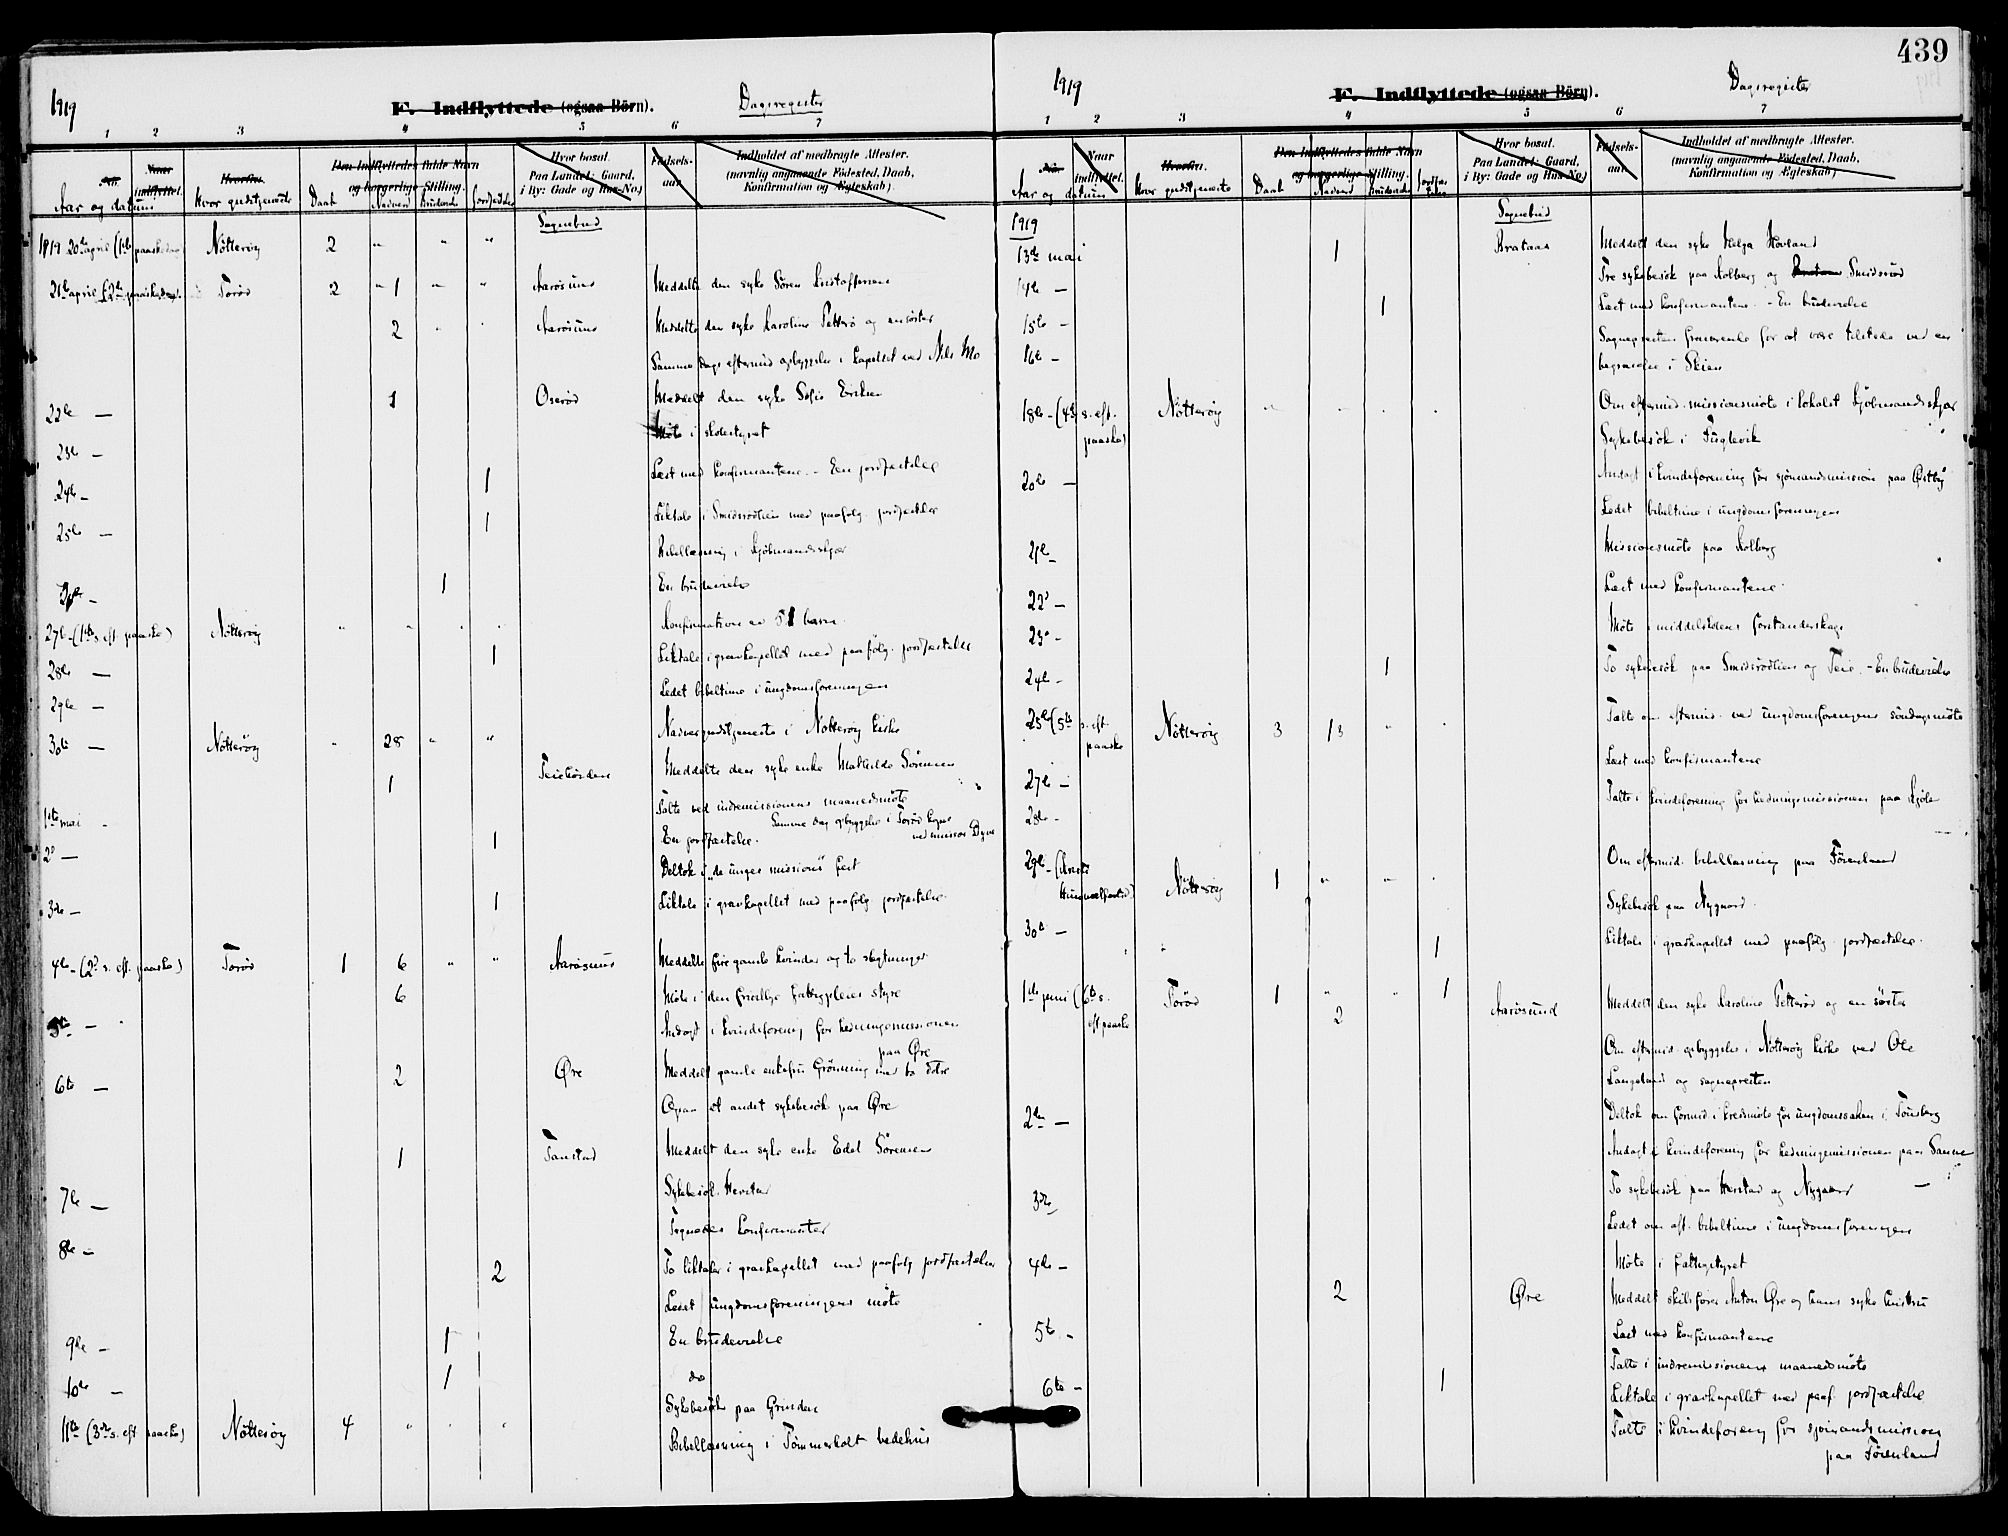 439
1919
F. Indflyttede (ogsaa Börn).
Dagsregister
1 2 3 4 5 6 7
No.
Naar indflyttet.
Hvorfra.
Den Indflyttedes fulde Navn og borgerlige Stilling.
Hvor bosat. Paa Landet: Gaard, i By: Gade og Hus-No.)
Fødsels-aar.
Indholdet af medbragte Attester. (navnlig angaaende Födested, Daab, Konfirmation og Ægteskab).
Aar og datum
Hvor gudstjeneste
Daab
Nadverd
Brudevielse
Jordfæstelse
Sognebud
1919 20de april (1ste paaskedag) Nötteröy 2 " " "
21de april (2den paaskedag) Torød 2 " 1 " " Aarösund Meddelte den syke Sören Kristoffersen
2 " " Aarösund Meddelte den syke Karoline Petterö og en söster
Samme dags eftermid opbyggelse i kapellet ved Nils Mo
22de — 1 Oserød Meddelt den syke Sofie Eriksen
23de — Möte i skolestyret
24de — 1 Læst med konfirmantene. - En jordfæstelse
25de — 1 Liktale i Smidsrödlien med paafölg. jordfæstelse
Bibellæsning i Kjöbmandsskjær
26de — 1 En brudevielse
27de — (1ste s. eft. paaske) Nötteröy " " " " Konfirmation av 51 barn.
28de — 1 Liktale i gravkapellet med paafölg. jordfæstelse
29de — Ledet bibeltime i ungdomsforeningen
30te — Nötteröy " 28 " " Nadvergudstjeneste i Nötteröy kirke
1 Teiehöiden Meddelte den syke enke Mathilde Sörensen
1ste mai - Talte ved indremissionens maanedsmöte
Samme dag opbyggelse i Torød kapel ved missionær Dyrø
2d — 1 En jordfæstelse.
Deltok i "de unges missions" fest
3die — 1 Liktale i gravkapellet med paafölg. jordfæstelse.
4de — (2d s. eft. paaske) Torød 1 6 " " Aarösund Meddelte fire gamle kvinder og to slegtninger
6 Möte i den frivillige fattigpleies styre
5te — Andagt i kvindeforening for hedningemissionen
paa Øre
6te — 2 Øre Meddelt gamle enkefru Grönning med to dötre
Ogsaa et andet sykebesök paa Øre
1 Tanstad Meddelt den syke enke Edel Sörensen
7de — Sykebesök Herstad
Tegnedes konfirmanter
8de — 2 To liktaler i gravkapellet med paafölg jordfæstelse
Ledet ungdomsforeningens möte
9de — 1 En brudevielse
10de — 1 do
Sykebesök paa Grinden
11te (3die s. eft paaske) Nötteröy 4 " " " Bibellæsning i Tömmerholt bedehus
1919
F. Indflyttede (ogsaa Börn).
Dagsregister
1 2 3 4 5 6 7
No.
Naar indflyttet.
Hvorfra.
Den Indflyttedes fulde Navn og borgerlige Stilling.
Hvor bosat. Paa Landet: Gaard, i By: Gade og Hus-No.)
Fødsels-aar.
Indholdet af medbragte Attester. (navnlig angaaende Födested, Daab, Konfirmation og Ægteskab)
Aar og datum
Hvor gudstjeneste
Daab
Nadverd
Brudevielse
Jordfæstelse
Sognebud
1919
13de mai 1 Brataas Meddelt den syke Helga Hovland
14de — Tre sykebesök paa Kolberg og Smidsröd
15de — 1 Læst med konfirmantene. - En brudevielse
16de — Sognepresten fraværende for at være tilstede ved en
begravelse i Skien
18de - (4de s. eft. paaske) Nötteröy " " " " Om eftermid. missionsmöte i lokalet Kjöbmandsskjær
Sykebesök i Fuglevik
20de — Andagt i kvindeforening for sjömandsmission paa Østby
Ledet bibeltime i ungdomsforeningen
21de — Missionsmöte paa Kolberg
22d — Læst med konfirmantene.
23d — Möte i middelskolens forstanderskap
24de — 1 To sykebesök paa Smidsrödlien og Teie. - En brudevielse
25de (5te s. eft. paaske Nötteröy 3 13 " " Talte om eftermid. ved ungdomsforeningens söndagsmöte
27de — Læst med konfirmantene
28de — Talte i kvindeforening for hedningemissionen paa Kjöle
29de — (Kristi Himmelfartsd) Nötteröy 1 " " " Om eftermid. bibellæsning paa Föienland
30d — Sykebesök paa Nygaard.
1 Liktale i gravkapellet med paafölg. jordfæstelse.
1ste juni (6te s. eft paaske Torød 1 " " 1
2 Aarösund Meddelt den syke Karoline Petterö og en söster
Om eftermid opbyggelse i Nötteröy kirke ved Ole
Langeland og sognepresten
2den — Deltok om formid i kredsmöte for ungdomssaken i Tönsberg
Andagt i kvindeforening for hedningemissionen paa Sanne
3die — To sykebesök paa Herstad og Nygaard
Ledet om aft. bibeltime i ungdomsforeningen
4de — Möte i fattigstyret
2 Øre Meddelt skibsförer Anton Øre og hans syke hustru
5te — Læst med konfirmantene
Talte i indremissionens maanedsmöte
6te — 1 Liktale i gravkapellet med paaf. jordfæstelse
Talte i kvindeforening for sjömandsmission
paa Föienland